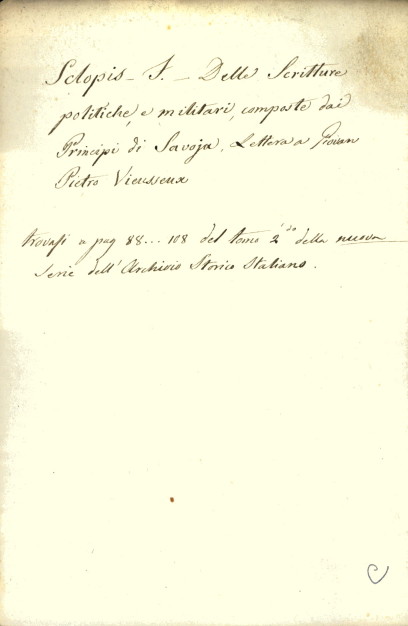 Sclopis - F. - Delle Scritture
politiche, e militari, composte dai
Principi di Savoja, Lettera a Giovan
Pietro Vieusseux
trovasi a pag 88... 108 del tomo 2.do della nuova
serie dell'Archivio Storico Italiano.
C